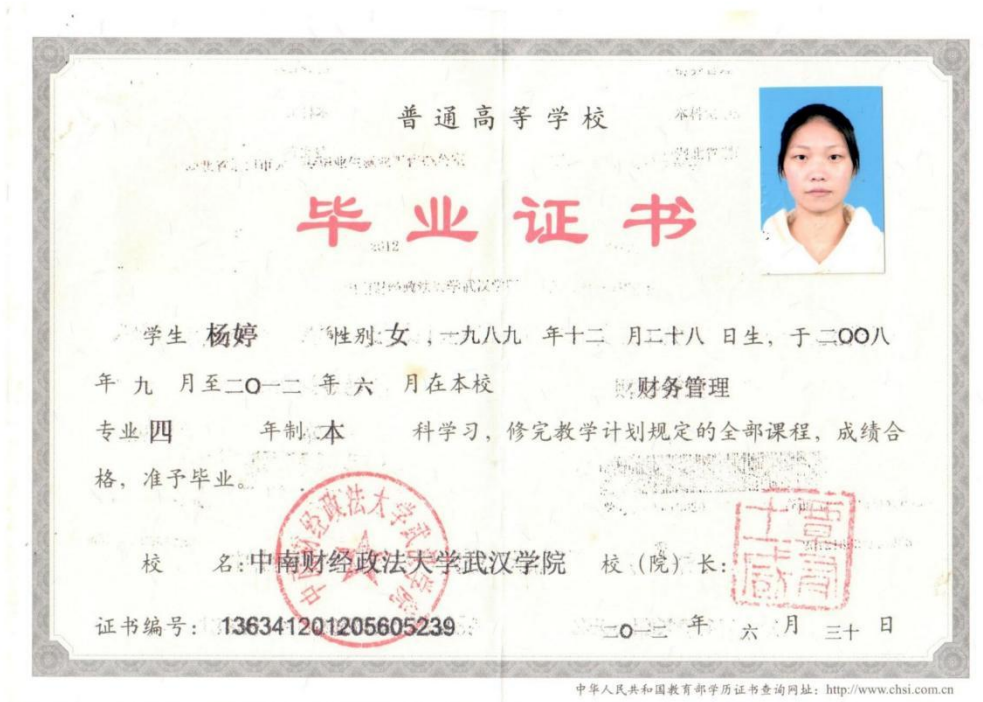 普通高等学校
毕业证书
学生 杨婷 性别 女 ，一九八九 年十二 月二十八 日生，于二〇〇八
年 九 月至二〇一二 年 六 月在本校 财务管理
专业 四 年制 本 科学习，修完教学计划规定的全部课程，成绩合
格，准予毕业。
校 名：中南财经政法大学武汉学院 校（院）长：
证书编号：136341201205605239 二〇一二 年 六 月 三十 日
中华人民共和国教育部学历证书查询网址：http://www.chsi.com.cn